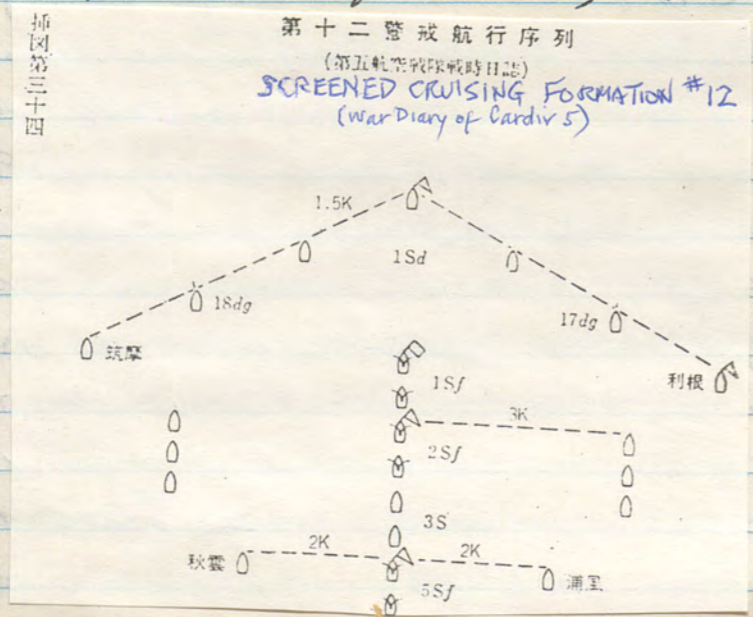 挿図第三十四
第十二警戒航行序列
(第五航空戦隊戦時日誌)
SCREENED CRUISING FORMATION #12
(War Diary of Cardiv 5)
1.5K
1Sd
18dg
17dg
筑摩
利根
1Sf
3K
2Sf
3S
秋雲
2K
2K
浦風
5Sf